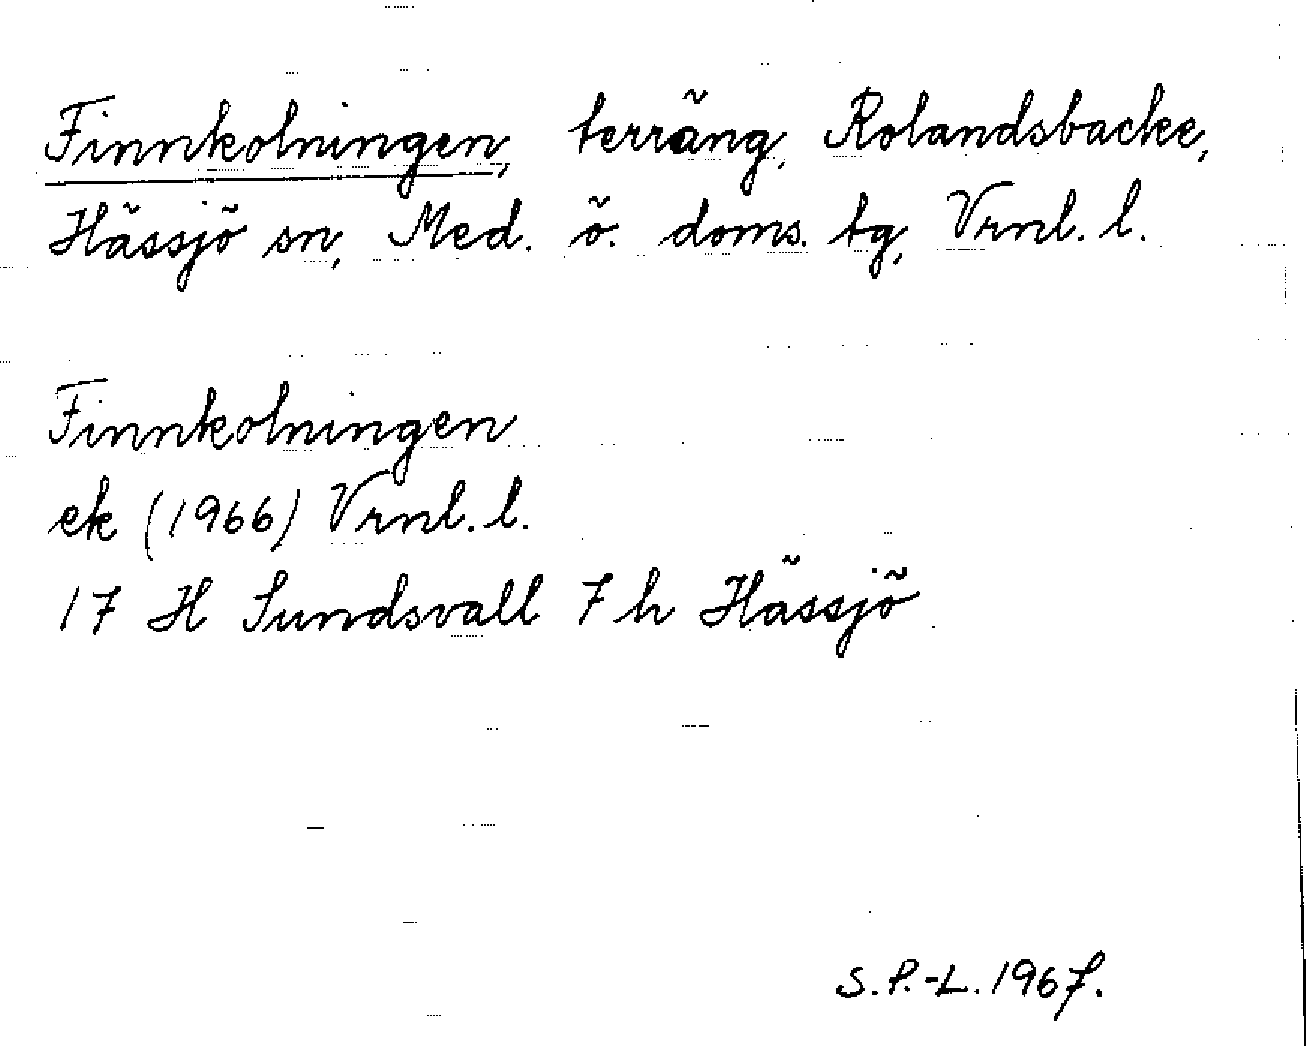 Finnkolningen, terräng, Rolandsbacke,
Hässjö sn, Med. ö. doms. tg, Vrnl. l.
Finnkolningen
ek (1966) Vrnl. l.
17 H Sundsvall 7 h Hässjö
S.P.-L. 1967.